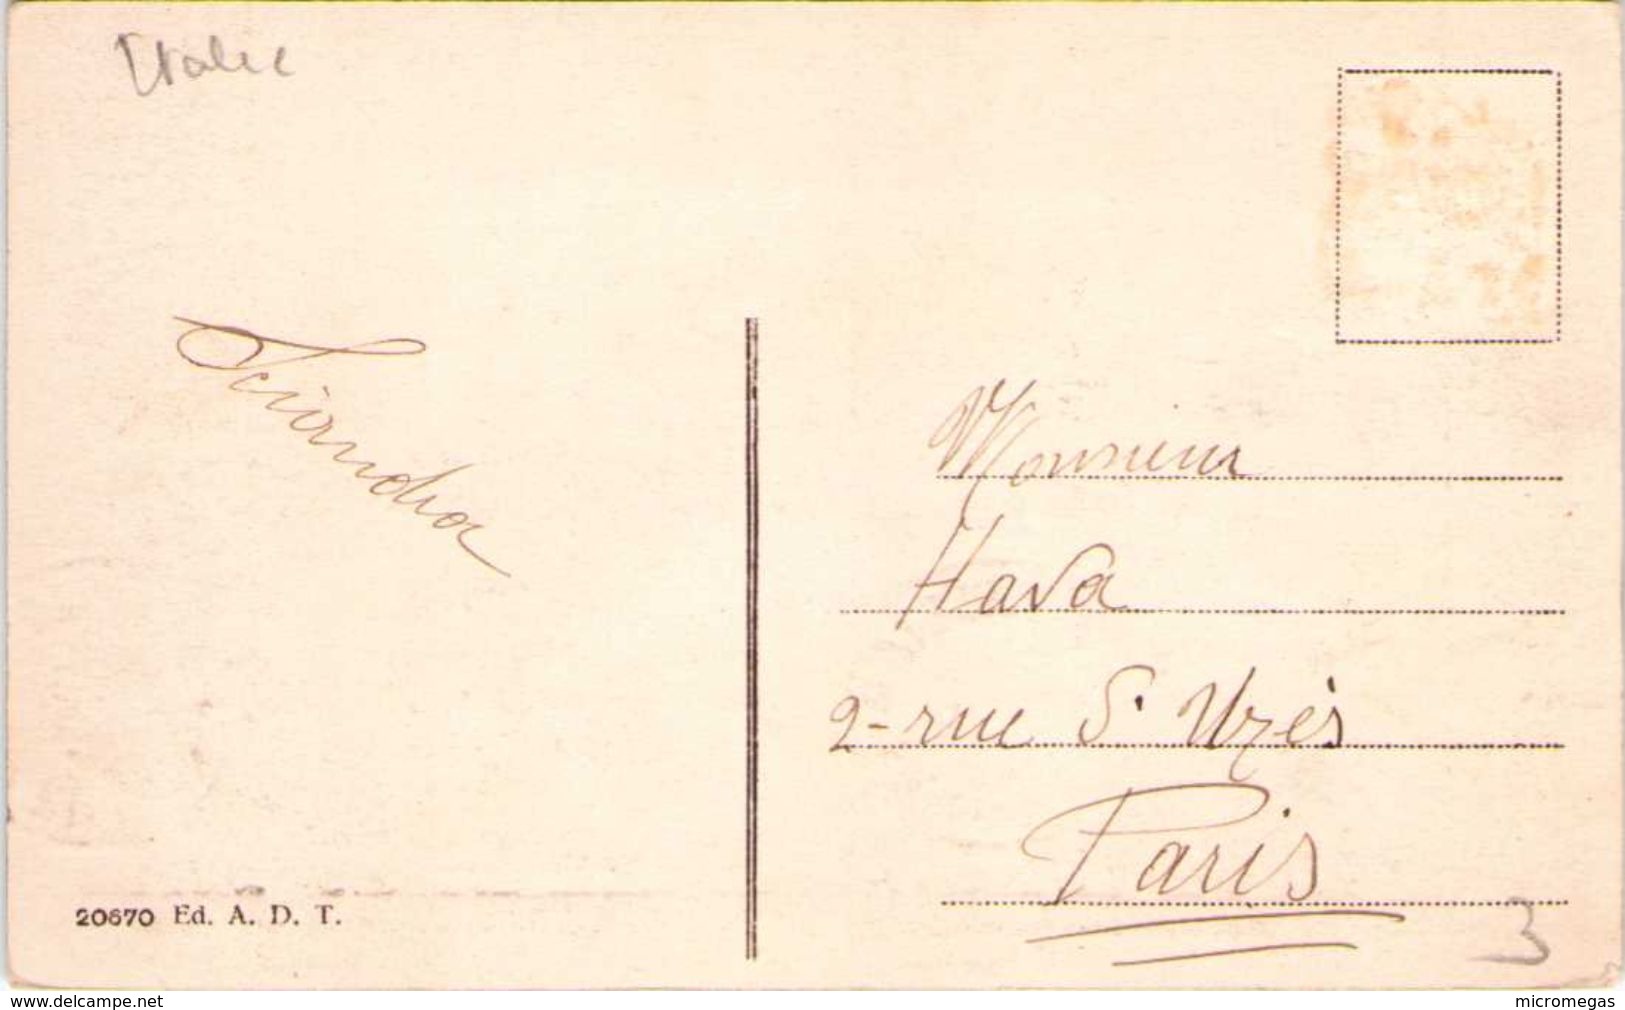 Italie
Monsieur
Hava
2-rue S. Uzès
Paris
20670 Ed. A. D. T.
3
www.delcampe.net
micromegas